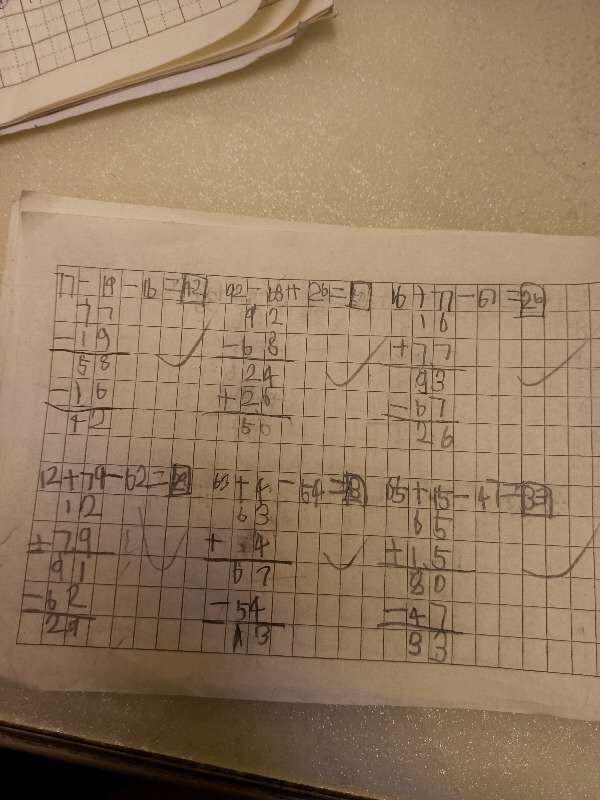 77-19-16=42
77
-19
58
-16
42
92-68+26=50
92
-68
24
+26
50
16+77-67=26
16
+77
93
-67
26
12+79-62=29
12
+79
91
-62
29
63+4-54=13
63
+ 4
67
-54
13
65+15-47=33
65
+15
80
-47
33